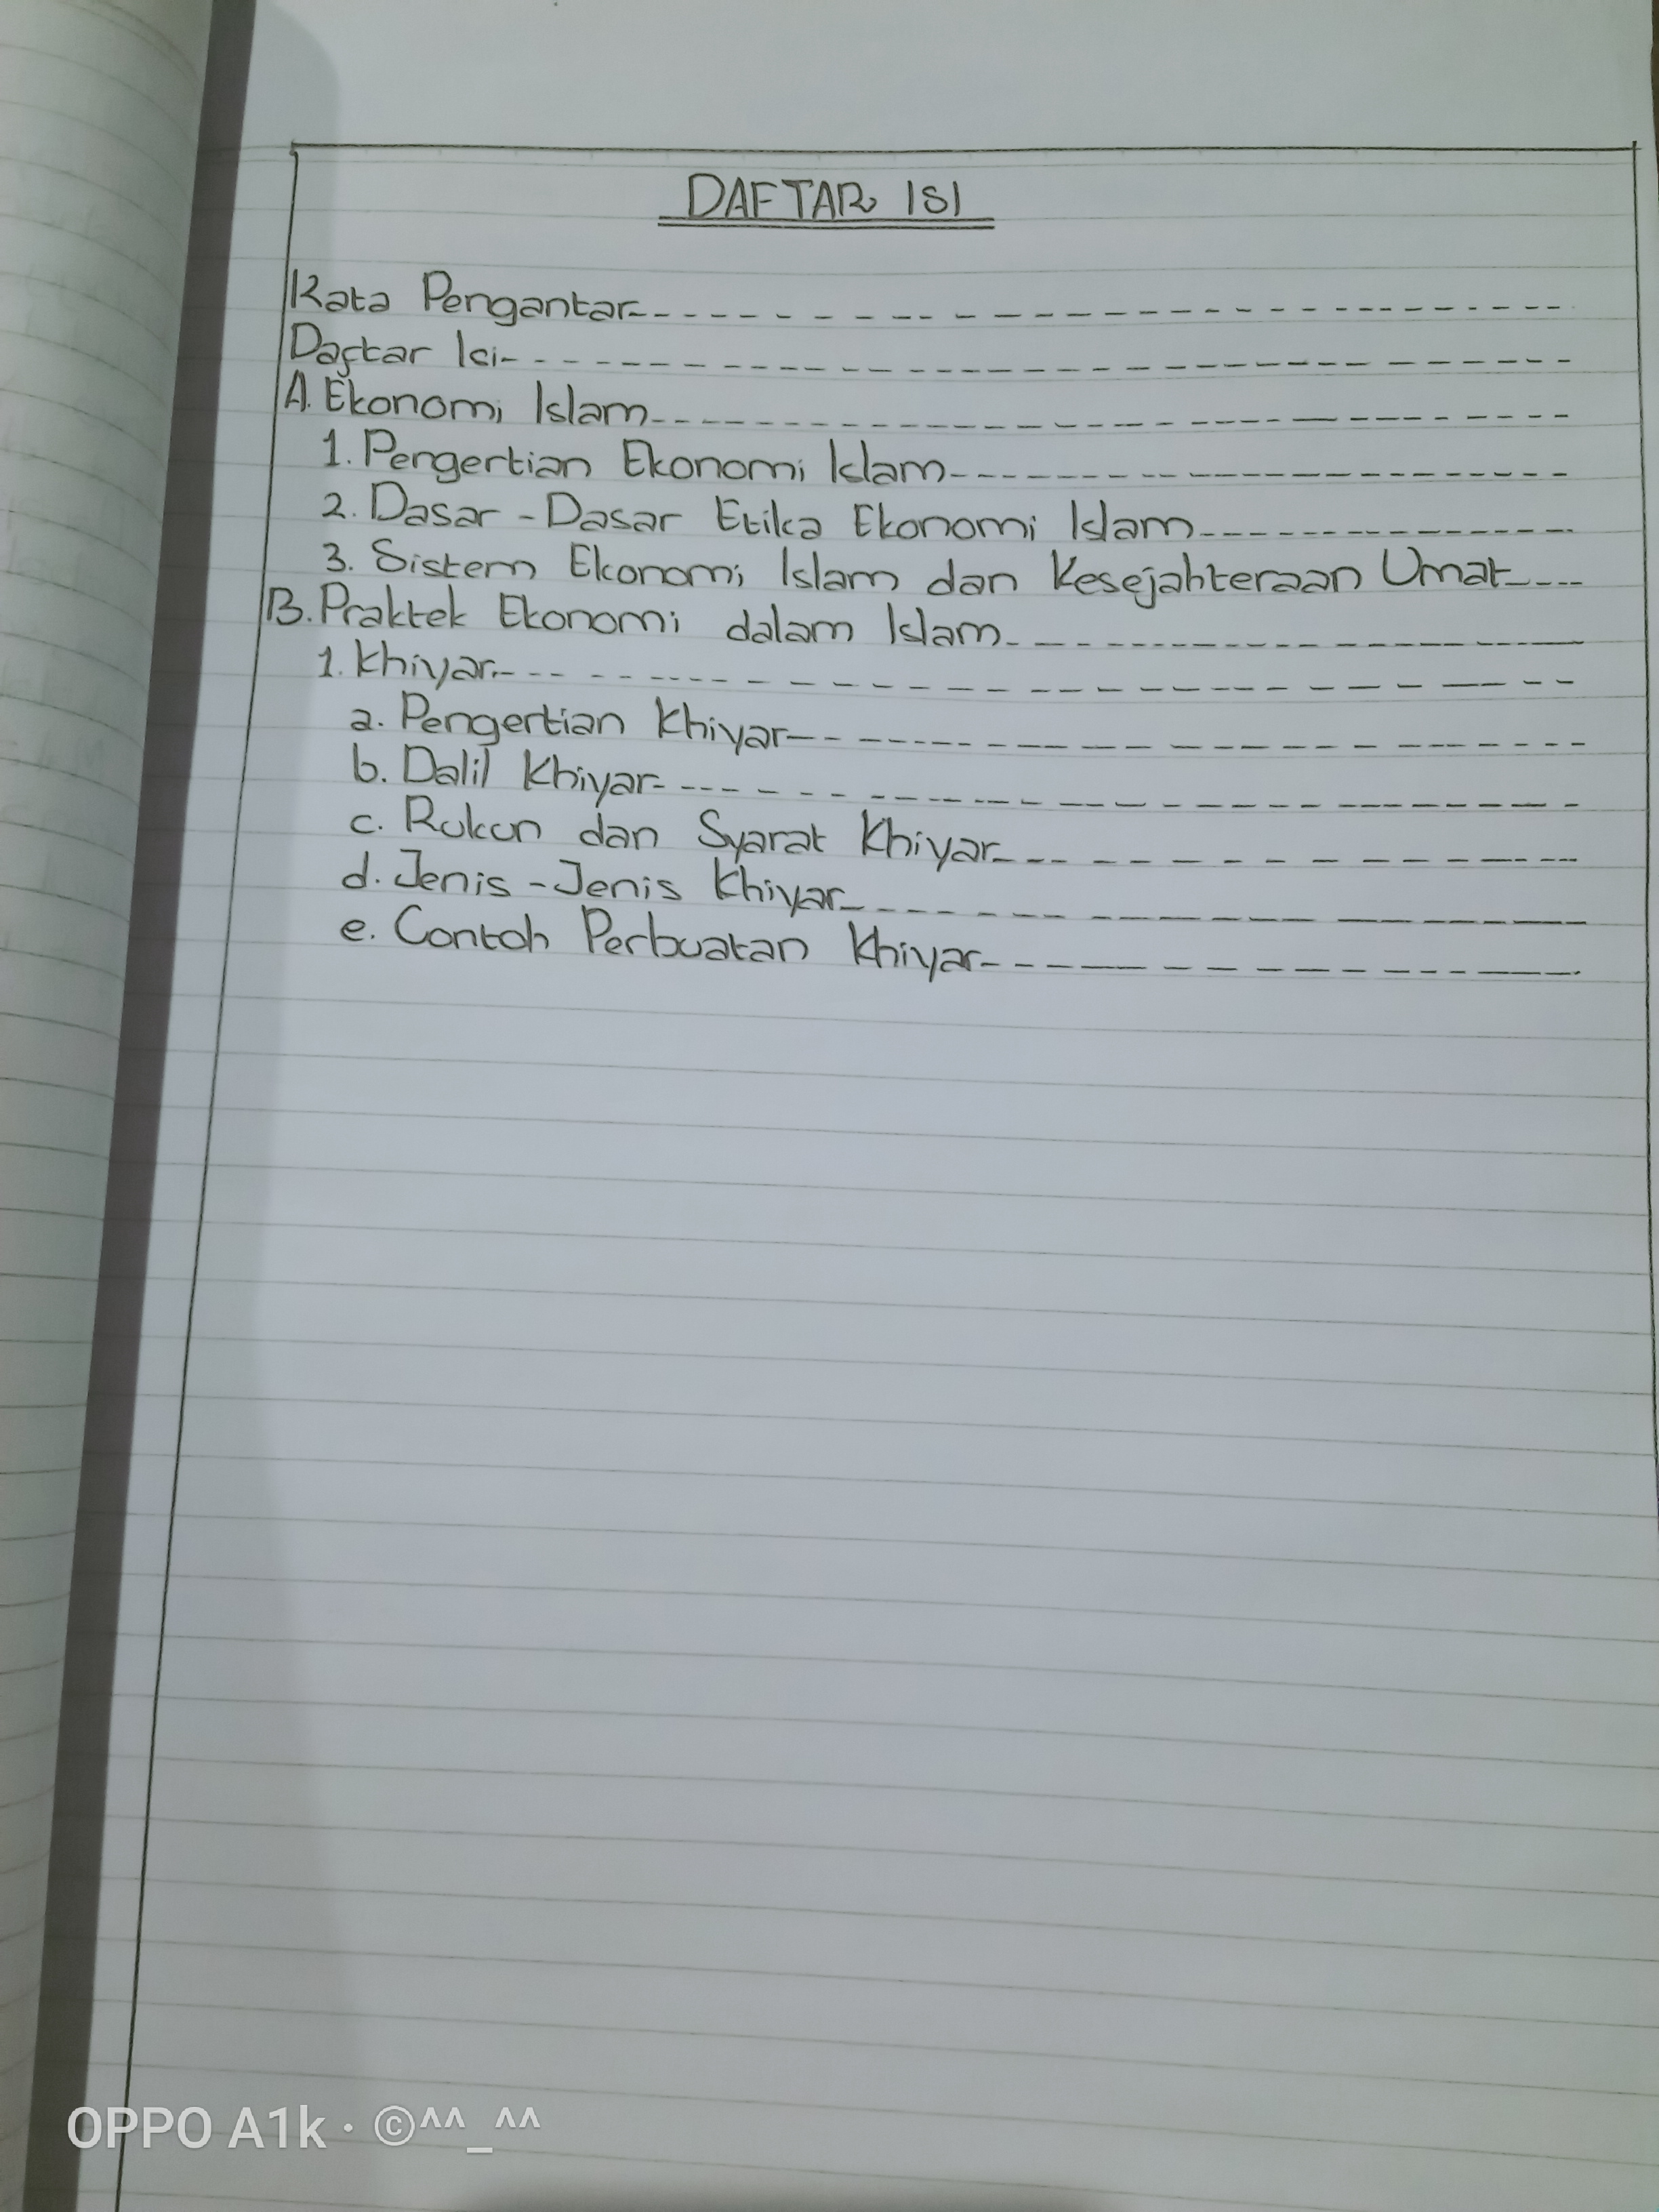 DAFTAR ISI
Kata Pengantar
Daftar Isi
A. Ekonomi Islam
1. Pengertian Ekonomi Islam
2. Dasar - Dasar Etika Ekonomi Islam
3. Sistem Ekonomi Islam dan Kesejahteraan Umat
B. Praktek Ekonomi dalam Islam
1. Khiyar
a. Pengertian Khiyar
b. Dalil Khiyar
c. Rukun dan Syarat Khiyar
d. Jenis - Jenis Khiyar
e. Contoh Perbuatan Khiyar
OPPO A1k · ©^^_^^